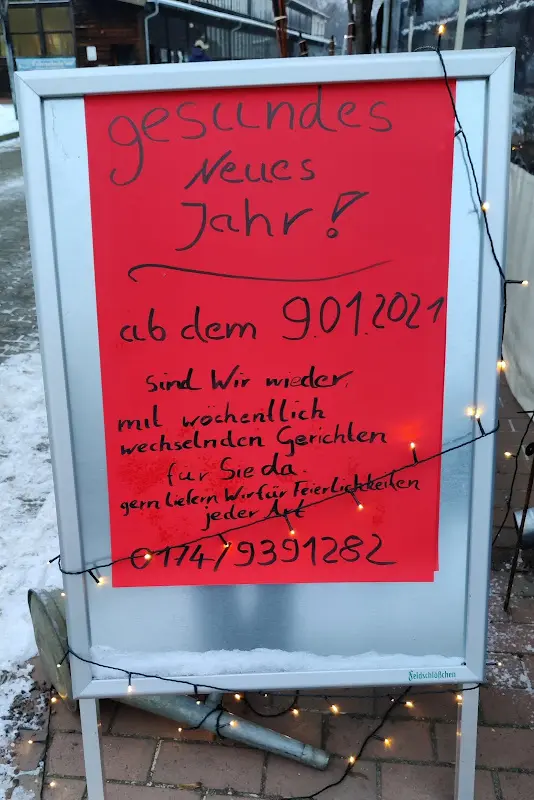 gesundes
Neues
Jahr!
ab dem 9.01.2021
sind Wir wieder,
mit wöchentlich
wechselnden Gerichten
für Sie da.
gern liefern Wir für Feierlichkeiten
jeder Art
0174/9391282
Feldschlößchen